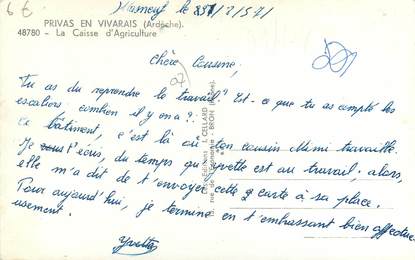 6 €
PRIVAS EN VIVARAIS (Ardèche)
48780 - La Caisse d'Agriculture
le 25/2/571
Chère Cousine,
07
Tu as du reprendre le travail? Est-ce que tu as compté les
escaliers combien il y en a?
ce bâtiment, c'est là où ton cousin Mimi travaille.
Je t'écris, du temps qu'yvette est au travail. alors,
elle m'a dit de t'envoyer cette carte à sa place.
Pour aujourd'hui, je termine en t'embrassant bien affectueusement.
Yvette
J. CELLARD
BRON